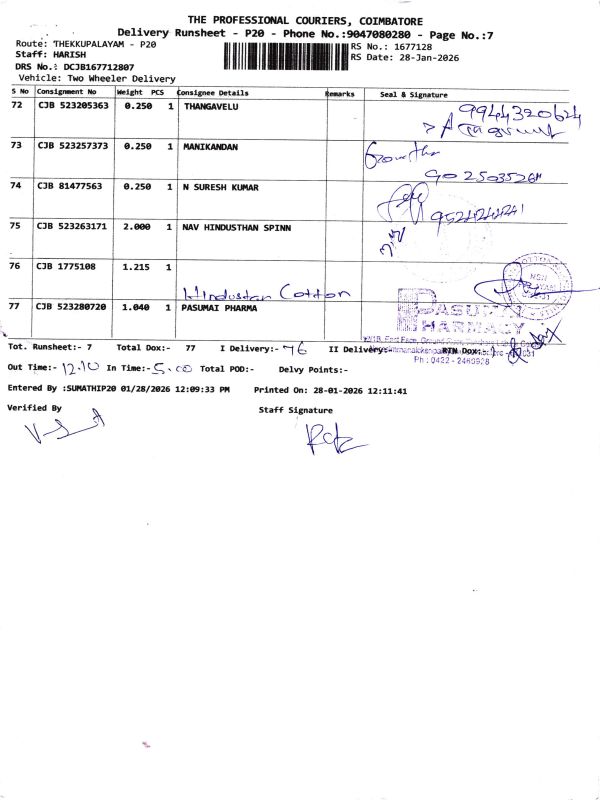 THE PROFESSIONAL COURIERS, COIMBATORE
Delivery Runsheet - P20 - Phone No.:9047080280 - Page No.:7
Route: THEKKUPALAYAM - P20
Staff: HARISH
DRS No.: DCJB167712807
Vehicle: Two Wheeler Delivery
RS No.: 1677128
RS Date: 28-Jan-2026
S No Consignment No Weight PCS Consignee Details Remarks Seal & Signature
72 CJB 523205363 0.250 1 THANGAVELU
9944320624
73 CJB 523257373 0.250 1 MANIKANDAN
74 CJB 81477563 0.250 1 N SURESH KUMAR
75 CJB 523263171 2.000 1 NAV HINDUSTHAN SPINN
76 CJB 1775108 1.215 1
Hindustan Cotton
77 CJB 523280720 1.040 1 PASUMAI PHARMA
PASUMAI
PHARMACY
Ph : 0422 -
Tot. Runsheet:- 7 Total Dox:- 77 I Delivery:- 76 II Delivery:- RTN Dox:-
Out Time:- 12.10 In Time:- 5.00 Total POD:- Delvy Points:-
Entered By :SUMATHIP20 01/28/2026 12:09:33 PM Printed On: 28-01-2026 12:11:41
Verified By Staff Signature